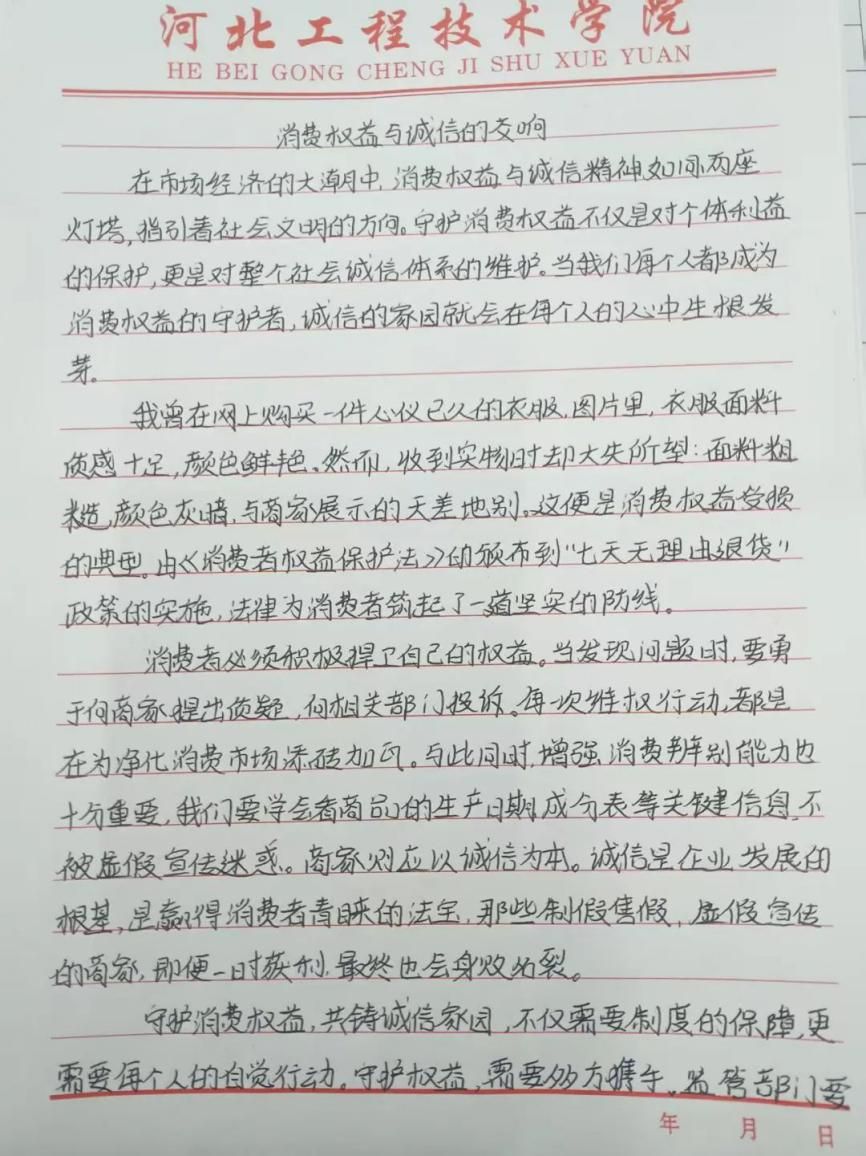 河北工程技术学院
HE BEI GONG CHENG JI SHU XUE YUAN
消费权益与诚信的交响
在市场经济的大潮中,消费权益与诚信精神如同两座
灯塔,指引着社会文明的方向。守护消费权益不仅是对个体利益
的保护,更是对整个社会诚信体系的维护。当我们每个人都成为
消费权益的守护者,诚信的家园就会在每个人的心中生根发
芽。
我曾在网上购买一件心仪已久的衣服,图片里,衣服面料
质感十足,颜色鲜艳。然而,收到实物时却大失所望:面料粗
糙,颜色灰暗,与商家展示的天差地别。这便是消费权益受损
的典型。由《消费者权益保护法》的颁布到“七天无理由退货”
政策的实施,法律为消费者筑起了一道坚实的防线。
消费者必须积极捍卫自己的权益。当发现问题时,要勇
于向商家提出质疑,向相关部门投诉。每次维权行动,都是
在为净化消费市场添砖加瓦。与此同时,增强消费辨别能力也
十分重要,我们要学会看商品的生产日期成分表等关键信息,不
被虚假宣传迷惑。商家则应以诚信为本。诚信是企业发展的
根基,是赢得消费者青睐的法宝,那些制假售假,虚假宣传
的商家,即便一时获利,最终也会身败名裂。
守护消费权益,共铸诚信家园,不仅需要制度的保障,更
需要每个人的自觉行动。守护权益,需要多方携手。监管部门要
年 月 日